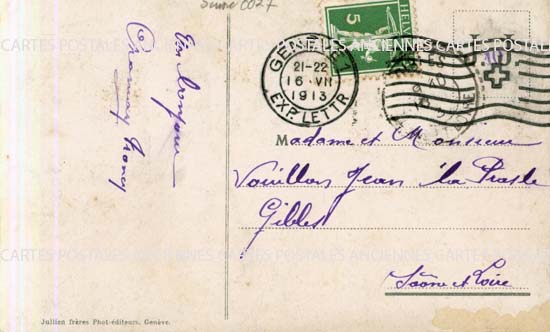 Suisse 0027
Un bonjour
GENÈVE 1
21-22
16 VII
1913
EXP. LETTR
HELVETIA
5
Madame et Monsieur
Vouillon Jean la Praste
Gibles
Saône et Loire
CARTES POSTALES ANCIENNES CARTES POSTALES
CARTES POSTALES ANCIENNES CARTES POSTALES ANCIENNES
Jullien frères Phot-éditeurs, Genève.